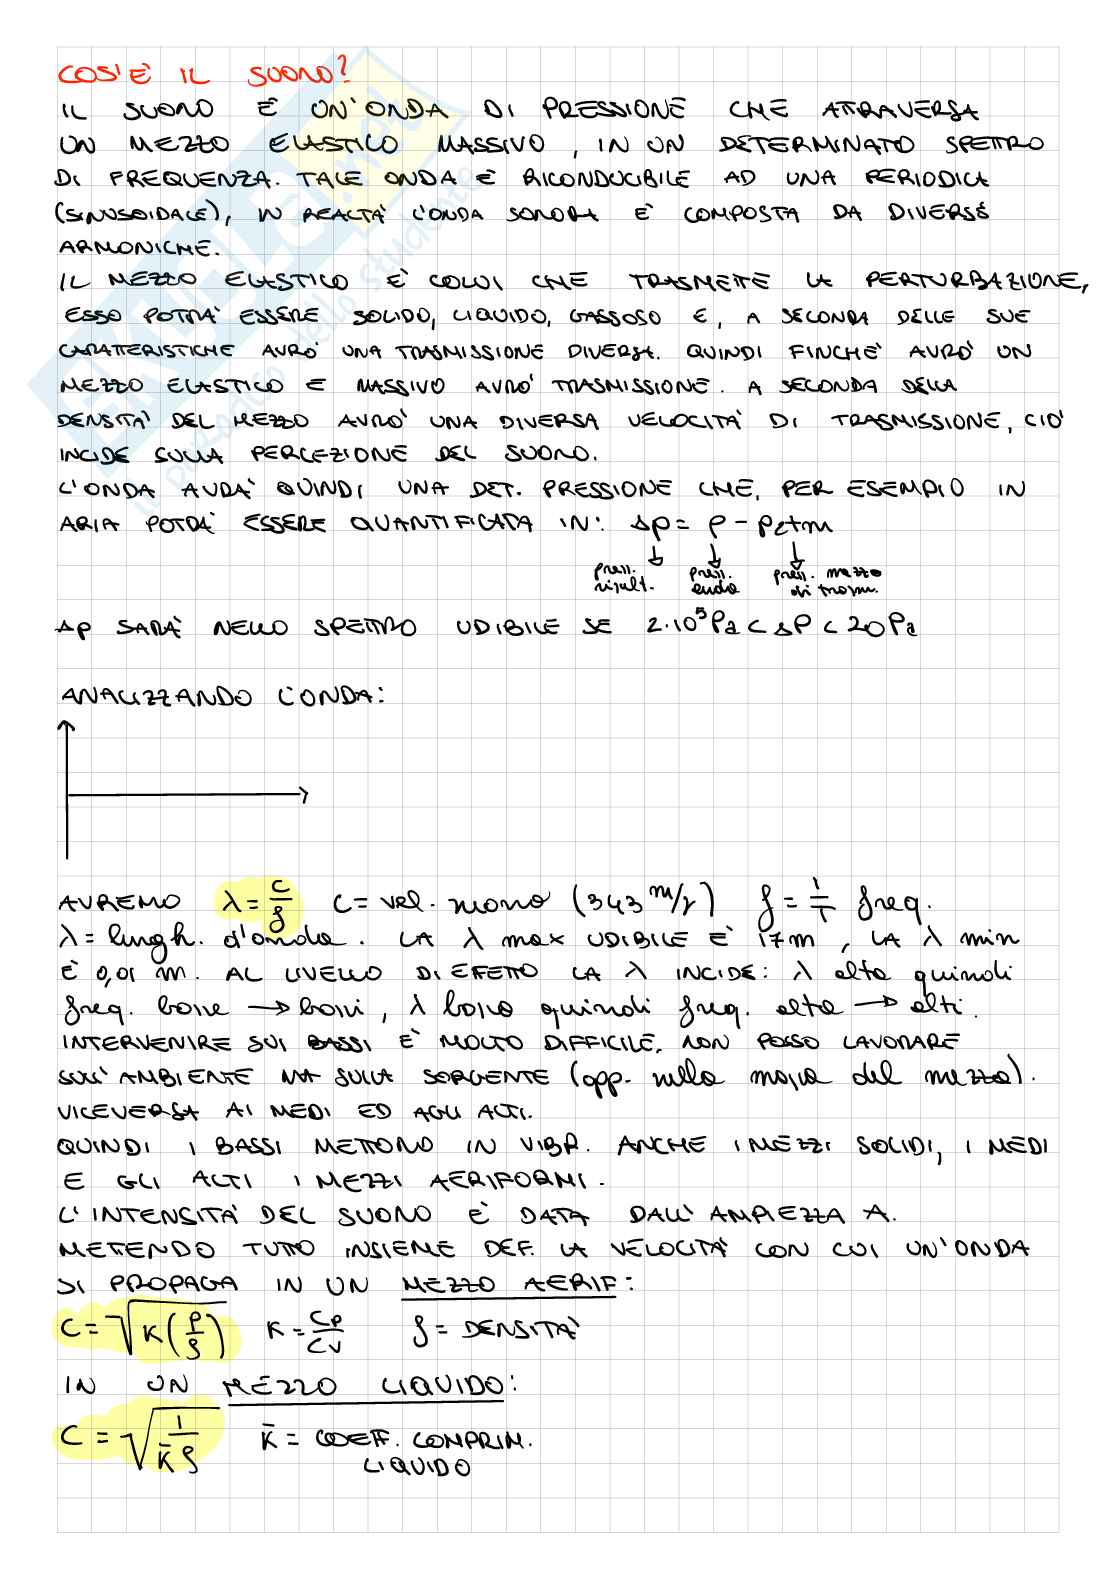 COS'È IL SUONO?
IL SUONO È UN'ONDA DI PRESSIONE CHE ATTRAVERSA
UN MEZZO ELASTICO MASSIVO, IN UN DETERMINATO SPETTRO
DI FREQUENZA. TALE ONDA È RICONDUCIBILE AD UNA PERIODICA
(SINUSOIDALE), IN REALTÀ L'ONDA SONORA È COMPOSTA DA DIVERSE
ARMONICHE.
IL MEZZO ELASTICO È COLUI CHE TRASMETTE LA PERTURBAZIONE,
ESSO POTRA' ESSERE SOLIDO, LIQUIDO, GASSOSO E, A SECONDA DELLE SUE
CARATTERISTICHE AVRO' UNA TRASMISSIONE DIVERSA. QUINDI FINCHE' AVRO' UN
MEZZO ELASTICO E MASSIVO AVRO' TRASMISSIONE. A SECONDA DELLA
DENSITA' DEL MEZZO AVRO' UNA DIVERSA VELOCITA' DI TRASMISSIONE, CIO'
INCIDE SULLA PERCEZIONE DEL SUONO.
L'ONDA AVRA' QUINDI UNA DET. PRESSIONE CHE, PER ESEMPIO IN
ARIA POTRA' ESSERE QUANTIFICATA IN: Δp = p - patm
press. risult. press. onda press. mezzo di trasm.
Δp SARA' NELLO SPETTRO UDIBILE SE 2·10⁵Pa < ΔP < 20Pa
ANALIZZANDO L'ONDA:
AVREMO λ = c/f C = vel. suono (343 m/s) f = 1/T freq.
λ = lungh. d'onda. LA λ max UDIBILE È 17m, LA λ min
È 0,01 m. AL LIVELLO DI EFFETTO LA λ INCIDE: λ alta quindi
freq. basse → bassi, λ bassa quindi freq. alta → alti.
INTERVENIRE SUI BASSI È MOLTO DIFFICILE, NON POSSO LAVORARE
SULL'AMBIENTE MA SULLA SORGENTE (opp. sulla massa del mezzo).
VICEVERSA AI MEDI ED AGLI ALTI.
QUINDI I BASSI METTONO IN VIBR. ANCHE I MEZZI SOLIDI, I MEDI
E GLI ALTI I MEZZI AERIFORMI.
L'INTENSITA' DEL SUONO È DATA DALL'AMPIEZZA A.
METTENDO TUTTO INSIEME DEF. LA VELOCITA' CON CUI UN'ONDA
SI PROPAGA IN UN MEZZO AERIF:
C = √(K(P/ρ)) K = Cp/Cv ρ = DENSITA'
IN UN MEZZO LIQUIDO:
C = √(1/(K̄ρ)) K̄ = COEFF. COMPRIM.
LIQUIDO